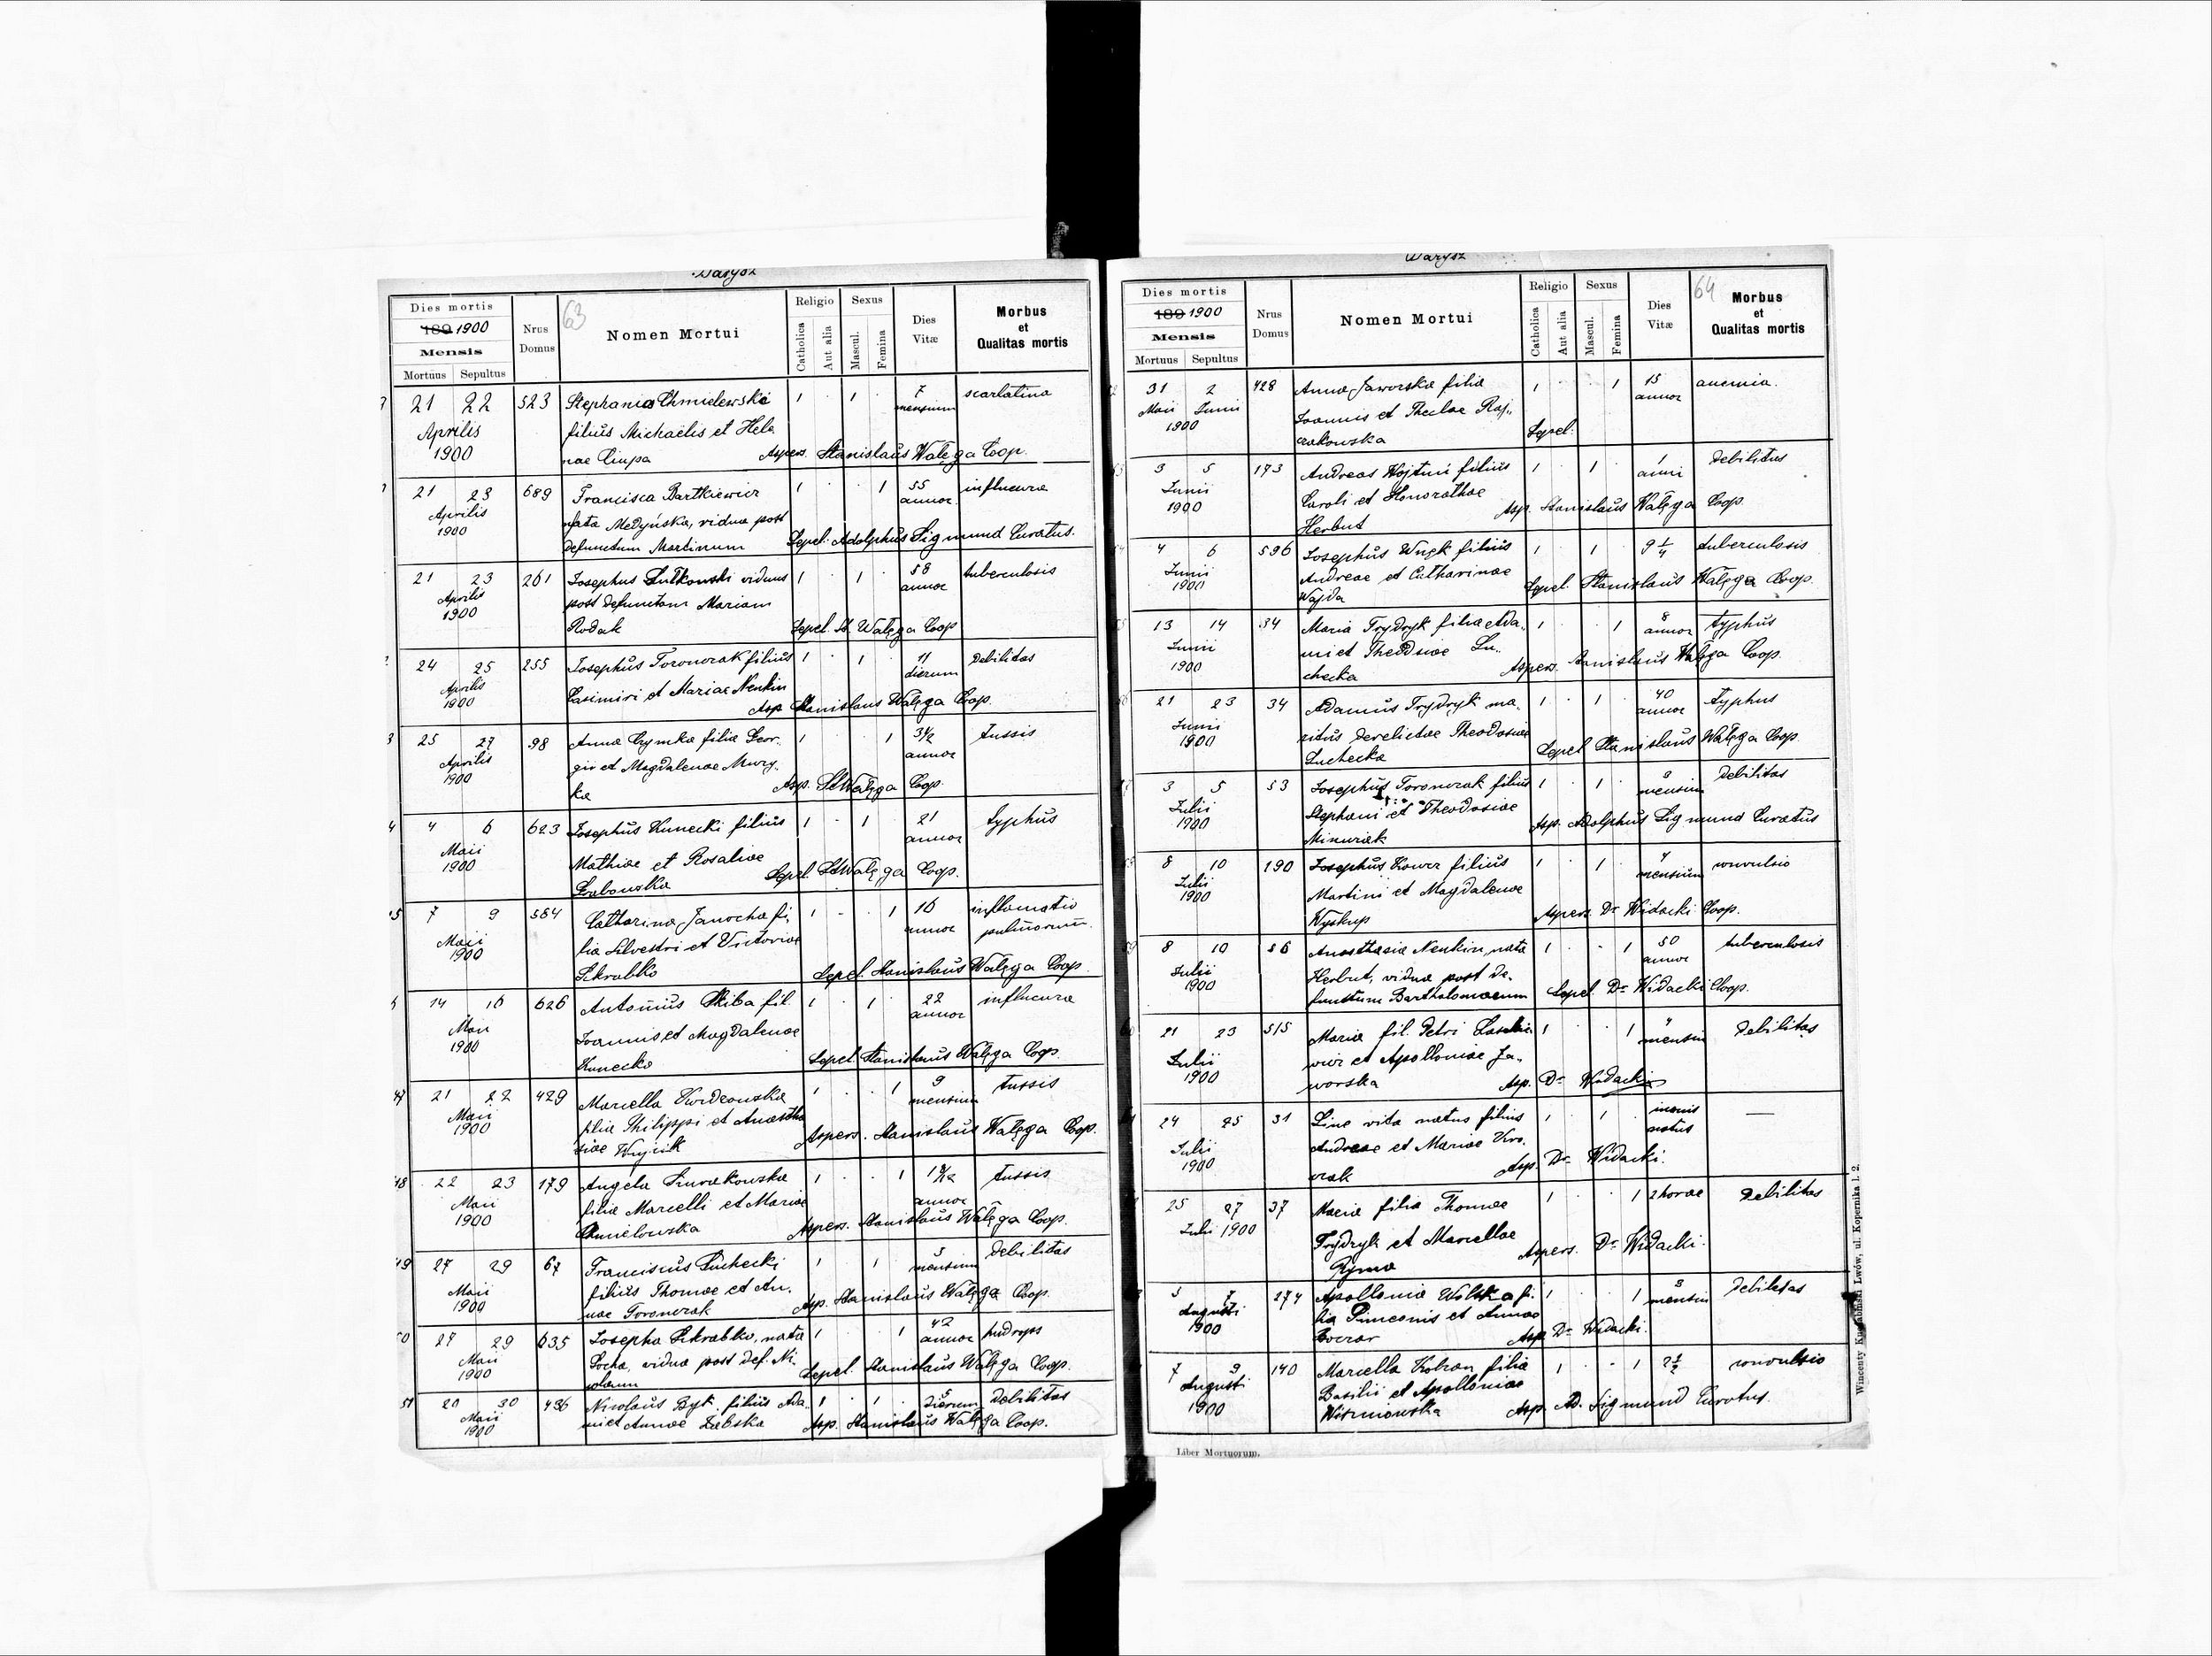 Barysz
63
Dies mortis
189 1900
Mensis
Mortuus Sepultus
Nrus
Domus
Nomen Mortui
Religio
Catholica
Aut alia
Sexus
Mascul.
Femina
Dies
Vitæ
Morbus
et
Qualitas mortis
21 22 523 Stephanus Chmielewski 1 · 1 · 7 scarlatina
Aprilis filius Michaelis et Hele mensium
1900 nae Ciupa Aspers. Stanislaus Walęga Coop.
21 23 689 Francisca Bartkiewicz 1 · · 1 55 influenza
Aprilis nata Medyńska, vidua post annor
1900 defunctum Martinum Sepel. Adolphus Sigmund Curatus.
21 23 261 Josephus Sutkowski viduus 1 · 1 · 58 tuberculosis
Aprilis post defunctam Mariam annor
1900 Rodak Sepel. St. Walęga Coop
24 25 255 Josephus Toronczak filius 1 · 1 · 11 debilitas
Aprilis Casimiri et Mariae Nenkin dierum
1900 Asp. Stanislaus Walęga Coop.
25 27 98 Anna Czymka filia Geor. 1 · · 1 3 1/2 tussis
Aprilis gii et Magdalenae annor
1900 Asp. St. Walęga Coop.
4 6 623 Josephus Kunecki filius 1 · 1 · 21 typhus
Maii Mathiae et Rosaliae annor
1900 Sepel. St. Walęga Coop.
7 9 564 Catharina Janocha fi, 1 · · 1 16 inflamatio
Maii lia Silvestri et Victoriae annor pulmorum.
1900 Skrabko Sepel. Stanislaus Walęga Coop.
14 16 626 Antonius Skiba fil. 1 · 1 · 22 influenza
Maii Joannis et Magdalenae annor
1900 Kunecka Sepel. Stanislaus Walęga Coop.
47 21 22 429 Marcella 1 · · 1 9 tussis
Maii filia Philippi et Anastha mensium
1900 siae Wujcik Aspers. Stanislaus Walęga Coop.
48 22 23 179 Angela 1 · · 1 tussis
Maii filia Marcelli et Mariae annor
1900 Chmielowska Aspers. Stanislaus Walęga Coop.
49 27 29 67 Franciscus Łuchecki 1 · 1 · 3 debilitas
Maii filius Thomae et An. mensium
1900 nae Toronczak Asp. Stanislaus Walęga Coop.
50 27 29 635 Josepha Skrabko, nata 1 · · 1 42 hudrops
Maii Socha, vidua post def. Ni. annor
1900 colaum Sepel. Stanislaus Walęga Coop.
51 20 30 436 Nicolaus Byk filius Ada. 1 · 1 · 5 dierum debilitas
Maii mi et Annae Zabska Asp. Stanislaus Walęga Coop.
1900
Barysz
64
Dies mortis
189 1900
Mensis
Mortuus Sepultus
Nrus
Domus
Nomen Mortui
Religio
Catholica
Aut alia
Sexus
Mascul.
Femina
Dies
Vitæ
Morbus
et
Qualitas mortis
31 2 428 Anna Jaworska filia 1 · · 1 15 anemia.
Maii Junii Joannis et Theclae Raj,, annor
1900 czakowska Sepel.
3 5 173 Andreas filius 1 · 1 · 1 debilitas
Junii Caroli et Honorathae anni
1900 Herbut Asp. Stanislaus Walęga Coop.
4 6 596 Josephus filius 1 · 1 · 9 1/4 tuberculosis
Junii Andreae et Catharinae
1900 Wajda Sepel. Stanislaus Walęga Coop.
13 14 34 Maria Frydryk filia Ada. 1 · · 1 8 typhus
Junii mi et Theodosiae Łu,, annor
1900 checka Aspers. Stanislaus Walęga Coop.
21 23 34 Adamus Frydryk ma. 1 · 1 · 40 typhus
Junii ritus derelictae Theodosiae annor
1900 Łuchecka Sepel. Stanislaus Walęga Coop.
3 5 53 Josephus Toronczak filius 1 · 1 · mensium debilitas
Julii Stephani et Theodosiae
1900 Asp. Adolphus Sigmund Curatus
8 10 190 Josephus Kower filius 1 · 1 · mensium convulsio
Julii Martini et Magdalenae
1900 Wyskup Aspers. Dr Widacki Coop.
8 10 56 Anasthasia Nenkin, nata 1 · · 1 50 tuberculosis
Julii Herbut, vidua post de. annor
1900 functum Bartholomaeum Sepel. Dr Widacki Coop.
21 23 515 Maria fil. Petri 1 · · 1 mensium debilitas
Julii et Apolloniae Ja,,
1900 worska Asp. Dr Widacki
24 25 31 Sine vita natus filius 1 · 1 · natus —
Julii Andreae et Mariae
1900 Asp. Dr Widacki.
25 27 37 Maria filia Thomae 1 · · 1 2 horae debilitas
Julii 1900 Frydryk et Marcellae
Ryma Aspers. Dr Widacki.
5 7 274 Apollonia Wolska fi. 1 · · 1 mensium debilitas
Augusti lia et Annae
1900 Asp. Dr Widacki.
7 9 140 Marcella Kobran filia 1 · · 1 2 1/2 convulsio
Augusti Basilii et Apolloniae
1900 Wiśniowska Asp. Ad. Sigmund Curatus.
Liber Mortuorum.
Lwów, ul. Kopernika l. 2.